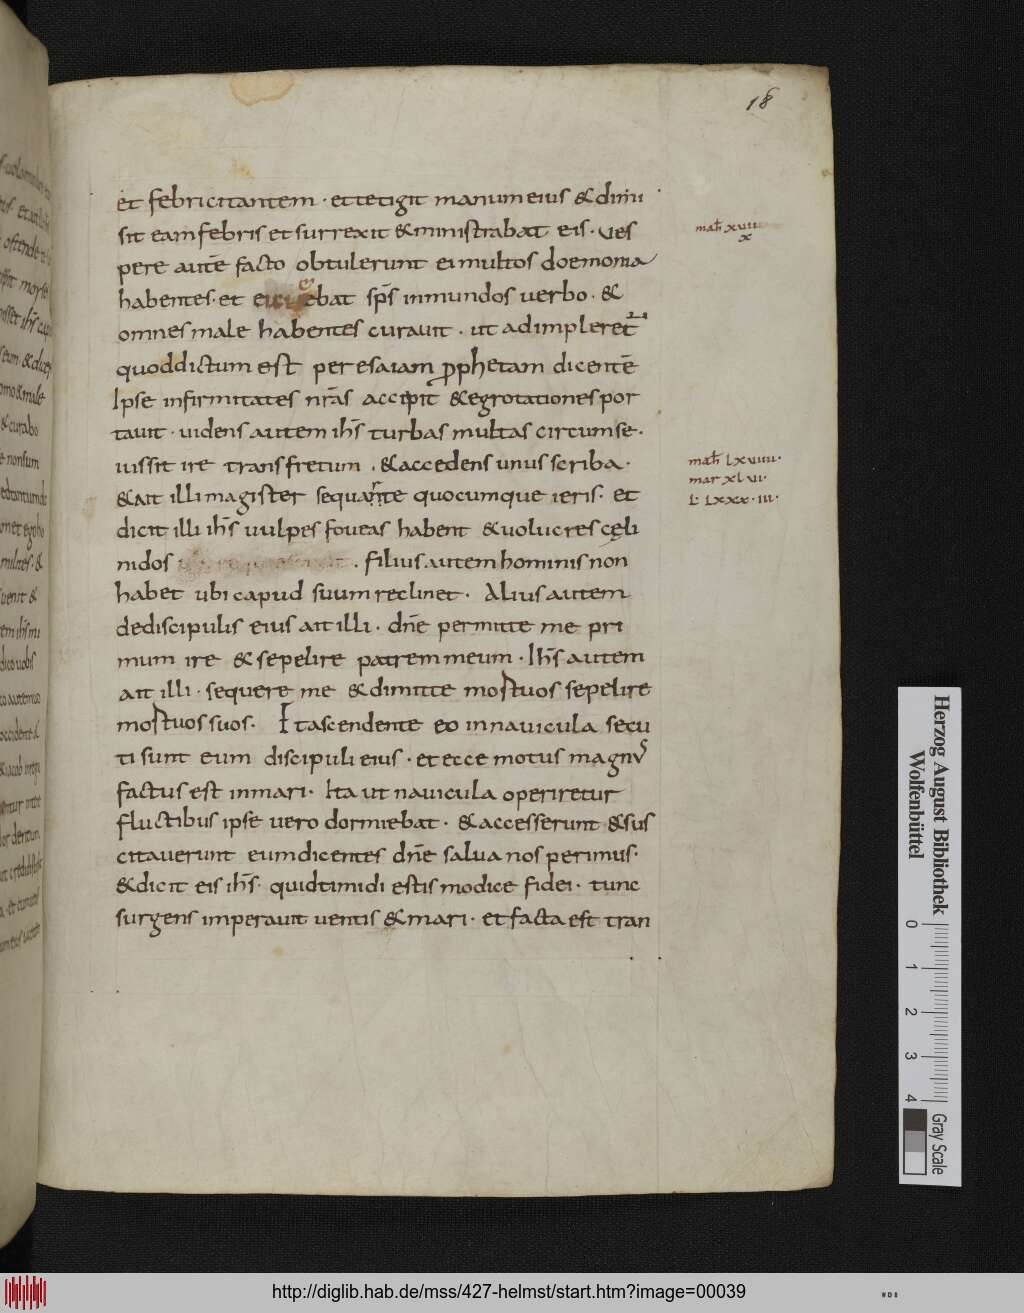 18
et febricitantem · et tetigit manum eius & dimi
sit eam febris et surrexit & ministrabat eis · ues
pere autē facto obtulerunt ei multos doemonia
habentes · et eiciebat sp̄s inmundos uerbo · &
omnes male habentes curauit · ut adimpleret
quod dictum est per esaiam ꝓphetam dicentē
Ipse infirmitates nr̄as accipit & egrotationes por
tauit · uidens autem ih̄s turbas multas circum se ·
iussit ire trans fretum · & accedens unus scriba ·
& ait illi magister sequar te quocumque ieris · et
dicit illi ih̄s uulpes foueas habent & uolucres cęli
nidos · filius autem hominis non
habet ubi capud suum reclinet · Alius autem
de discipulis eius ait illi · dn̄e permitte me pri
mum ire & sepelire patrem meum · Ih̄s autem
ait illi · sequere me & dimitte mortuos sepelire
mortuos suos · Et ascendente eo in nauicula secu
ti sunt eum discipuli eius · et ecce motus magnus
factus est in mari · Ita ut nauicula operiretur
fluctibus ipse uero dormiebat · & accesserunt & sus
citauerunt eum dicentes dn̄e salua nos perimus ·
& dicit eis ih̄s · quid timidi estis modice fidei · tunc
surgens imperauit uentis & mari · et facta est tran
math xuiii
x
math lxuiiii ·
mar xl ui ·
L lxxx · iii ·
Herzog August Bibliothek
Wolfenbüttel
0 1 2 3 4
Gray Scale
http://diglib.hab.de/mss/427-helmst/start.htm?image=00039